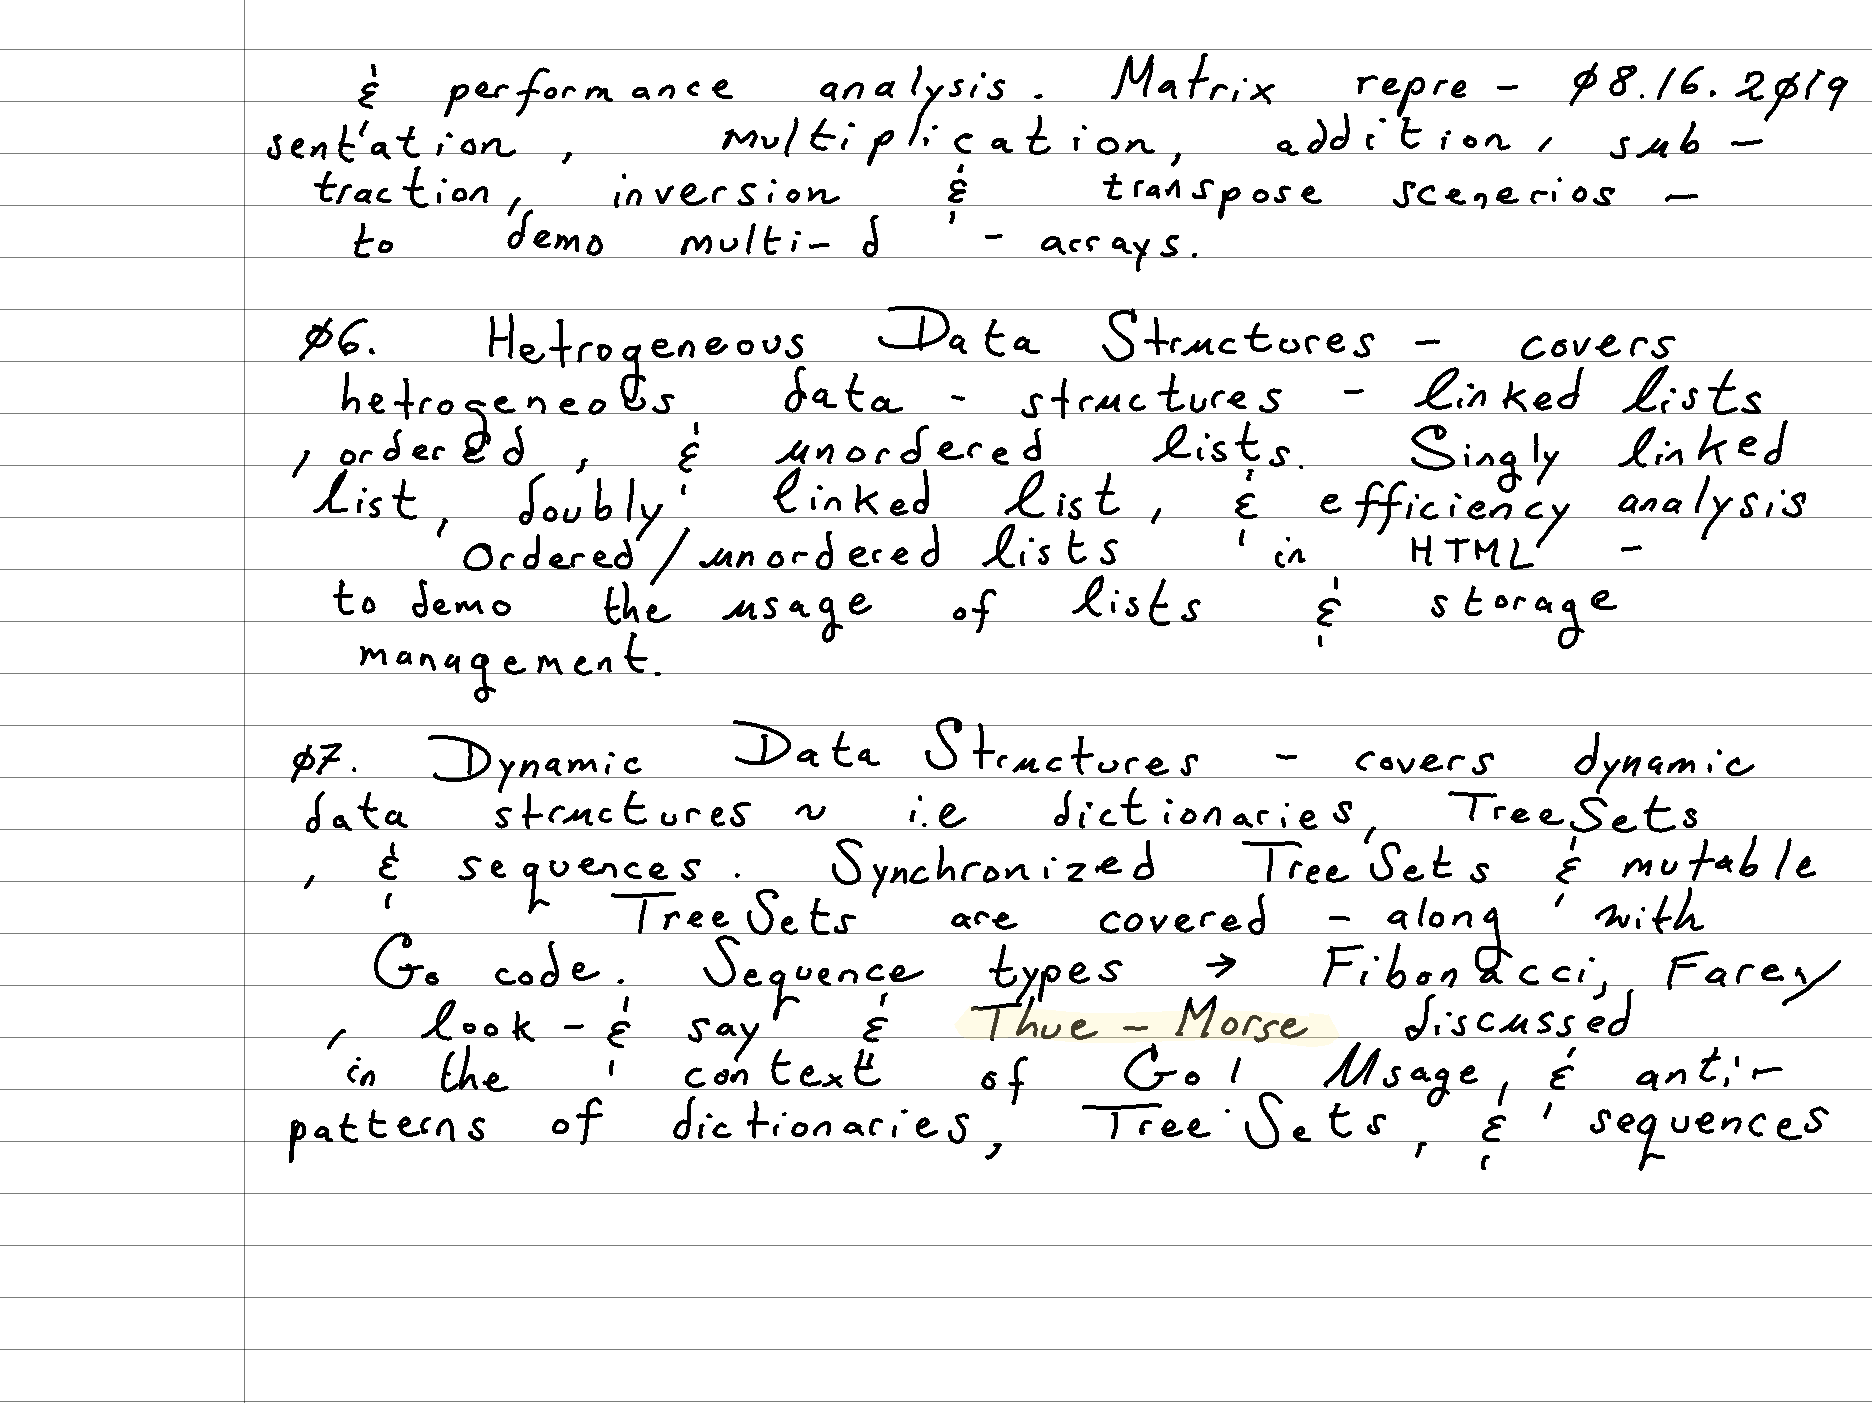 & performance analysis. Matrix repre - 08.16.2019
sentation, multiplication, addition, sub -
traction, inversion & transpose scenerios -
to demo multi-d - arrays.
06. Hetrogeneous Data Structures - covers
hetrogeneous data - structures - linked lists
, ordered, & unordered lists. Singly linked
list, doubly linked list, & efficiency analysis
Ordered/unordered lists in HTML -
to demo the usage of lists & storage
management.
07. Dynamic Data Structures - covers dynamic
data structures ~ i.e dictionaries, TreeSets
, & sequences. Synchronized TreeSets & mutable
TreeSets are covered - along with
Go code. Sequence types → Fibonacci, Farey
, look-&say & Thue-Morse discussed
in the context of Go! Usage, & anti-
patterns of dictionaries, TreeSets, & sequences